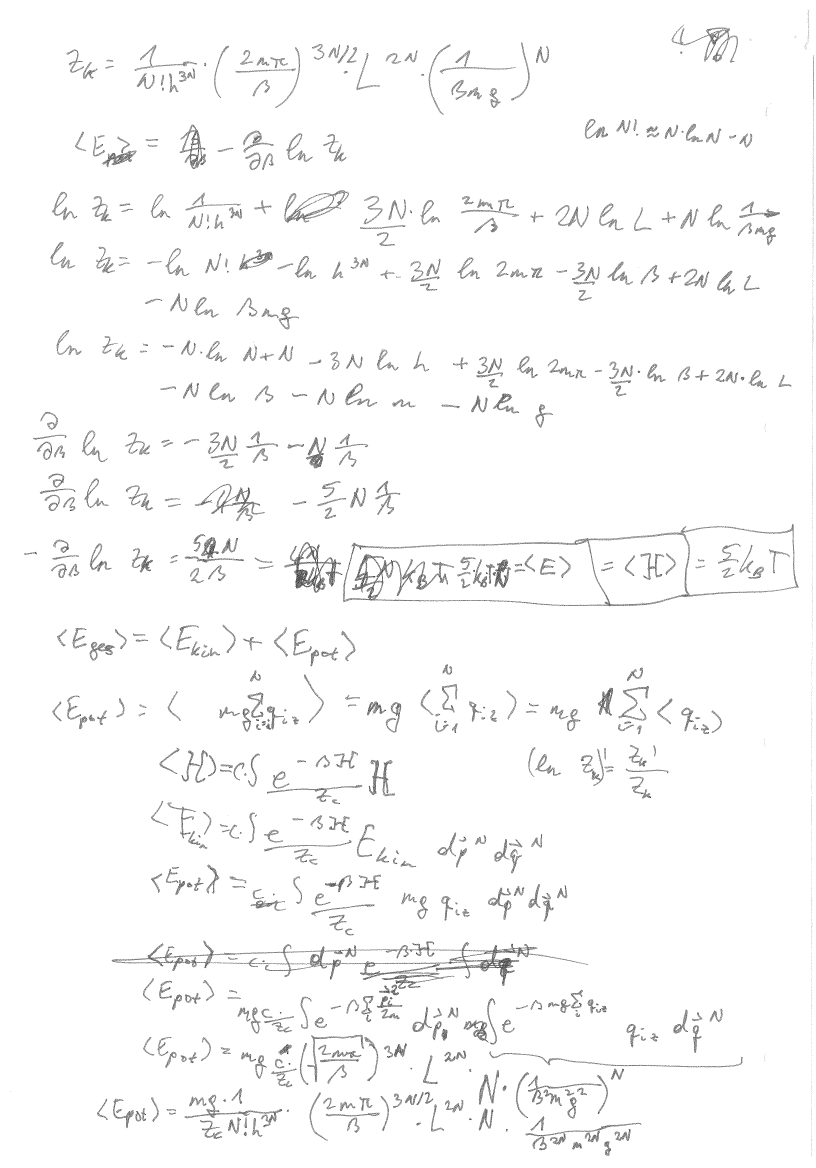 Z_k = 1/(N! h^{3N}) · (2mπ/β)^{3N/2} · L^{2N} · (1/(βmg))^N
ln N! ≈ N·ln N − N
⟨E⟩ = − ∂/∂β ln Z_k
ln Z_k = ln 1/(N! h^{3N}) + 3N/2 · ln 2mπ/β + 2N ln L + N ln 1/(βmg)
ln Z_k = −ln N! − ln h^{3N} + 3N/2 ln 2mπ − 3N/2 ln β + 2N ln L
− N ln βmg
ln Z_k = −N·ln N + N − 3N ln h + 3N/2 ln 2mπ − 3N/2 · ln β + 2N·ln L
− N ln β − N ln m − N ln g
∂/∂β ln Z_k = − 3N/2 1/β − N 1/β
∂/∂β ln Z_k = − 5/2 N 1/β
− ∂/∂β ln Z_k = 5N/2β = 5/2 k_B T N = ⟨E⟩ = ⟨H⟩ = 5/2 k_B T
⟨E_ges⟩ = ⟨E_kin⟩ + ⟨E_pot⟩
⟨E_pot⟩ = ⟨ mg Σ_{i=1}^N q_{iz} ⟩ = mg ⟨ Σ_{i=1}^N q_{iz} ⟩ = mg Σ_{i=1}^N ⟨q_{iz}⟩
⟨H⟩ = c·∫ e^{−βH}/Z_c H
(ln Z_k)' = Z_k'/Z_k
⟨E_kin⟩ = c·∫ e^{−βH}/Z_c E_kin dp⃗^N dq⃗^N
⟨E_pot⟩ = c·∫ e^{−βH}/Z_c mg q_{iz} dp⃗^N dq⃗^N
⟨E_pot⟩ = c·∫ dp⃗^N e^{−β·H}/Z_c ∫ dq⃗^N
⟨E_pot⟩ = mg c·/Z_c ∫ e^{−β Σ_i p⃗_i²/2m} dp⃗^N ∫ e^{−βmg Σ_i q_{iz}} q_{iz} dq⃗^N
⟨E_pot⟩ = mg c·/Z_c (√(2mπ/β))^{3N} · L^{2N} · N · (1/(β²m²g²))^N
⟨E_pot⟩ = mg·1/(Z_c N! h^{3N}) · (2mπ/β)^{3N/2} · L^{2N} · N · 1/(β^{2N} m^{2N} g^{2N})